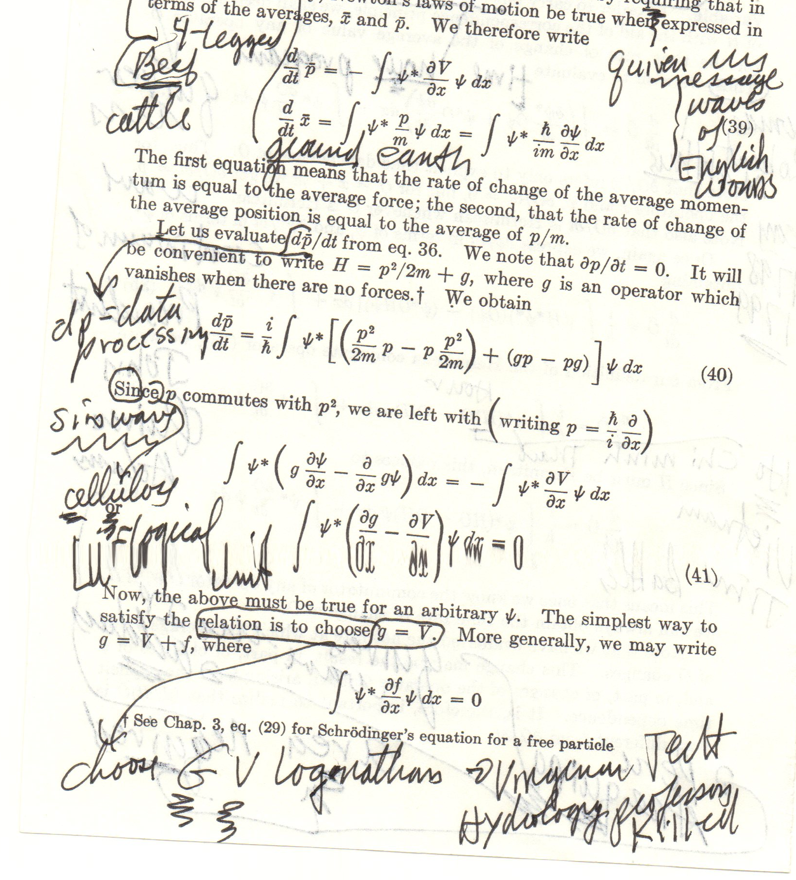 terms of the averages, x̄ and p̄. We therefore write
4-legged
Beef
cattle
d/dt p̄ = − ∫ ψ* ∂V/∂x ψ dx
message
waves
of
English
words
d/dt x̄ = ∫ ψ* p/m ψ dx = ∫ ψ* ħ/im ∂ψ/∂x dx
(39)
ground earth
The first equation means that the rate of change of the average momen-
tum is equal to the average force; the second, that the rate of change of
the average position is equal to the average of p/m.
Let us evaluate dp̄/dt from eq. 36. We note that ∂p/∂t = 0. It will
be convenient to write H = p²/2m + g, where g is an operator which
vanishes when there are no forces.† We obtain
dp = data
processing
dp̄/dt = i/ħ ∫ ψ* [(p²/2m p − p p²/2m) + (gp − pg)] ψ dx (40)
Since p commutes with p², we are left with (writing p = ħ/i ∂/∂x)
∫ ψ* (g ∂ψ/∂x − ∂/∂x gψ) dx = − ∫ ψ* ∂V/∂x ψ dx
or
LU = logical unit
∫ ψ* (∂g/∂x − ∂V/∂x) ψ dx = 0
(41)
Now, the above must be true for an arbitrary ψ. The simplest way to
satisfy the relation is to choose g = V. More generally, we may write
g = V + f, where
∫ ψ* ∂f/∂x ψ dx = 0
† See Chap. 3, eq. (29) for Schrödinger's equation for a free particle
choose G V Loganathan → Virginia Tech
Hydrology professor
killed